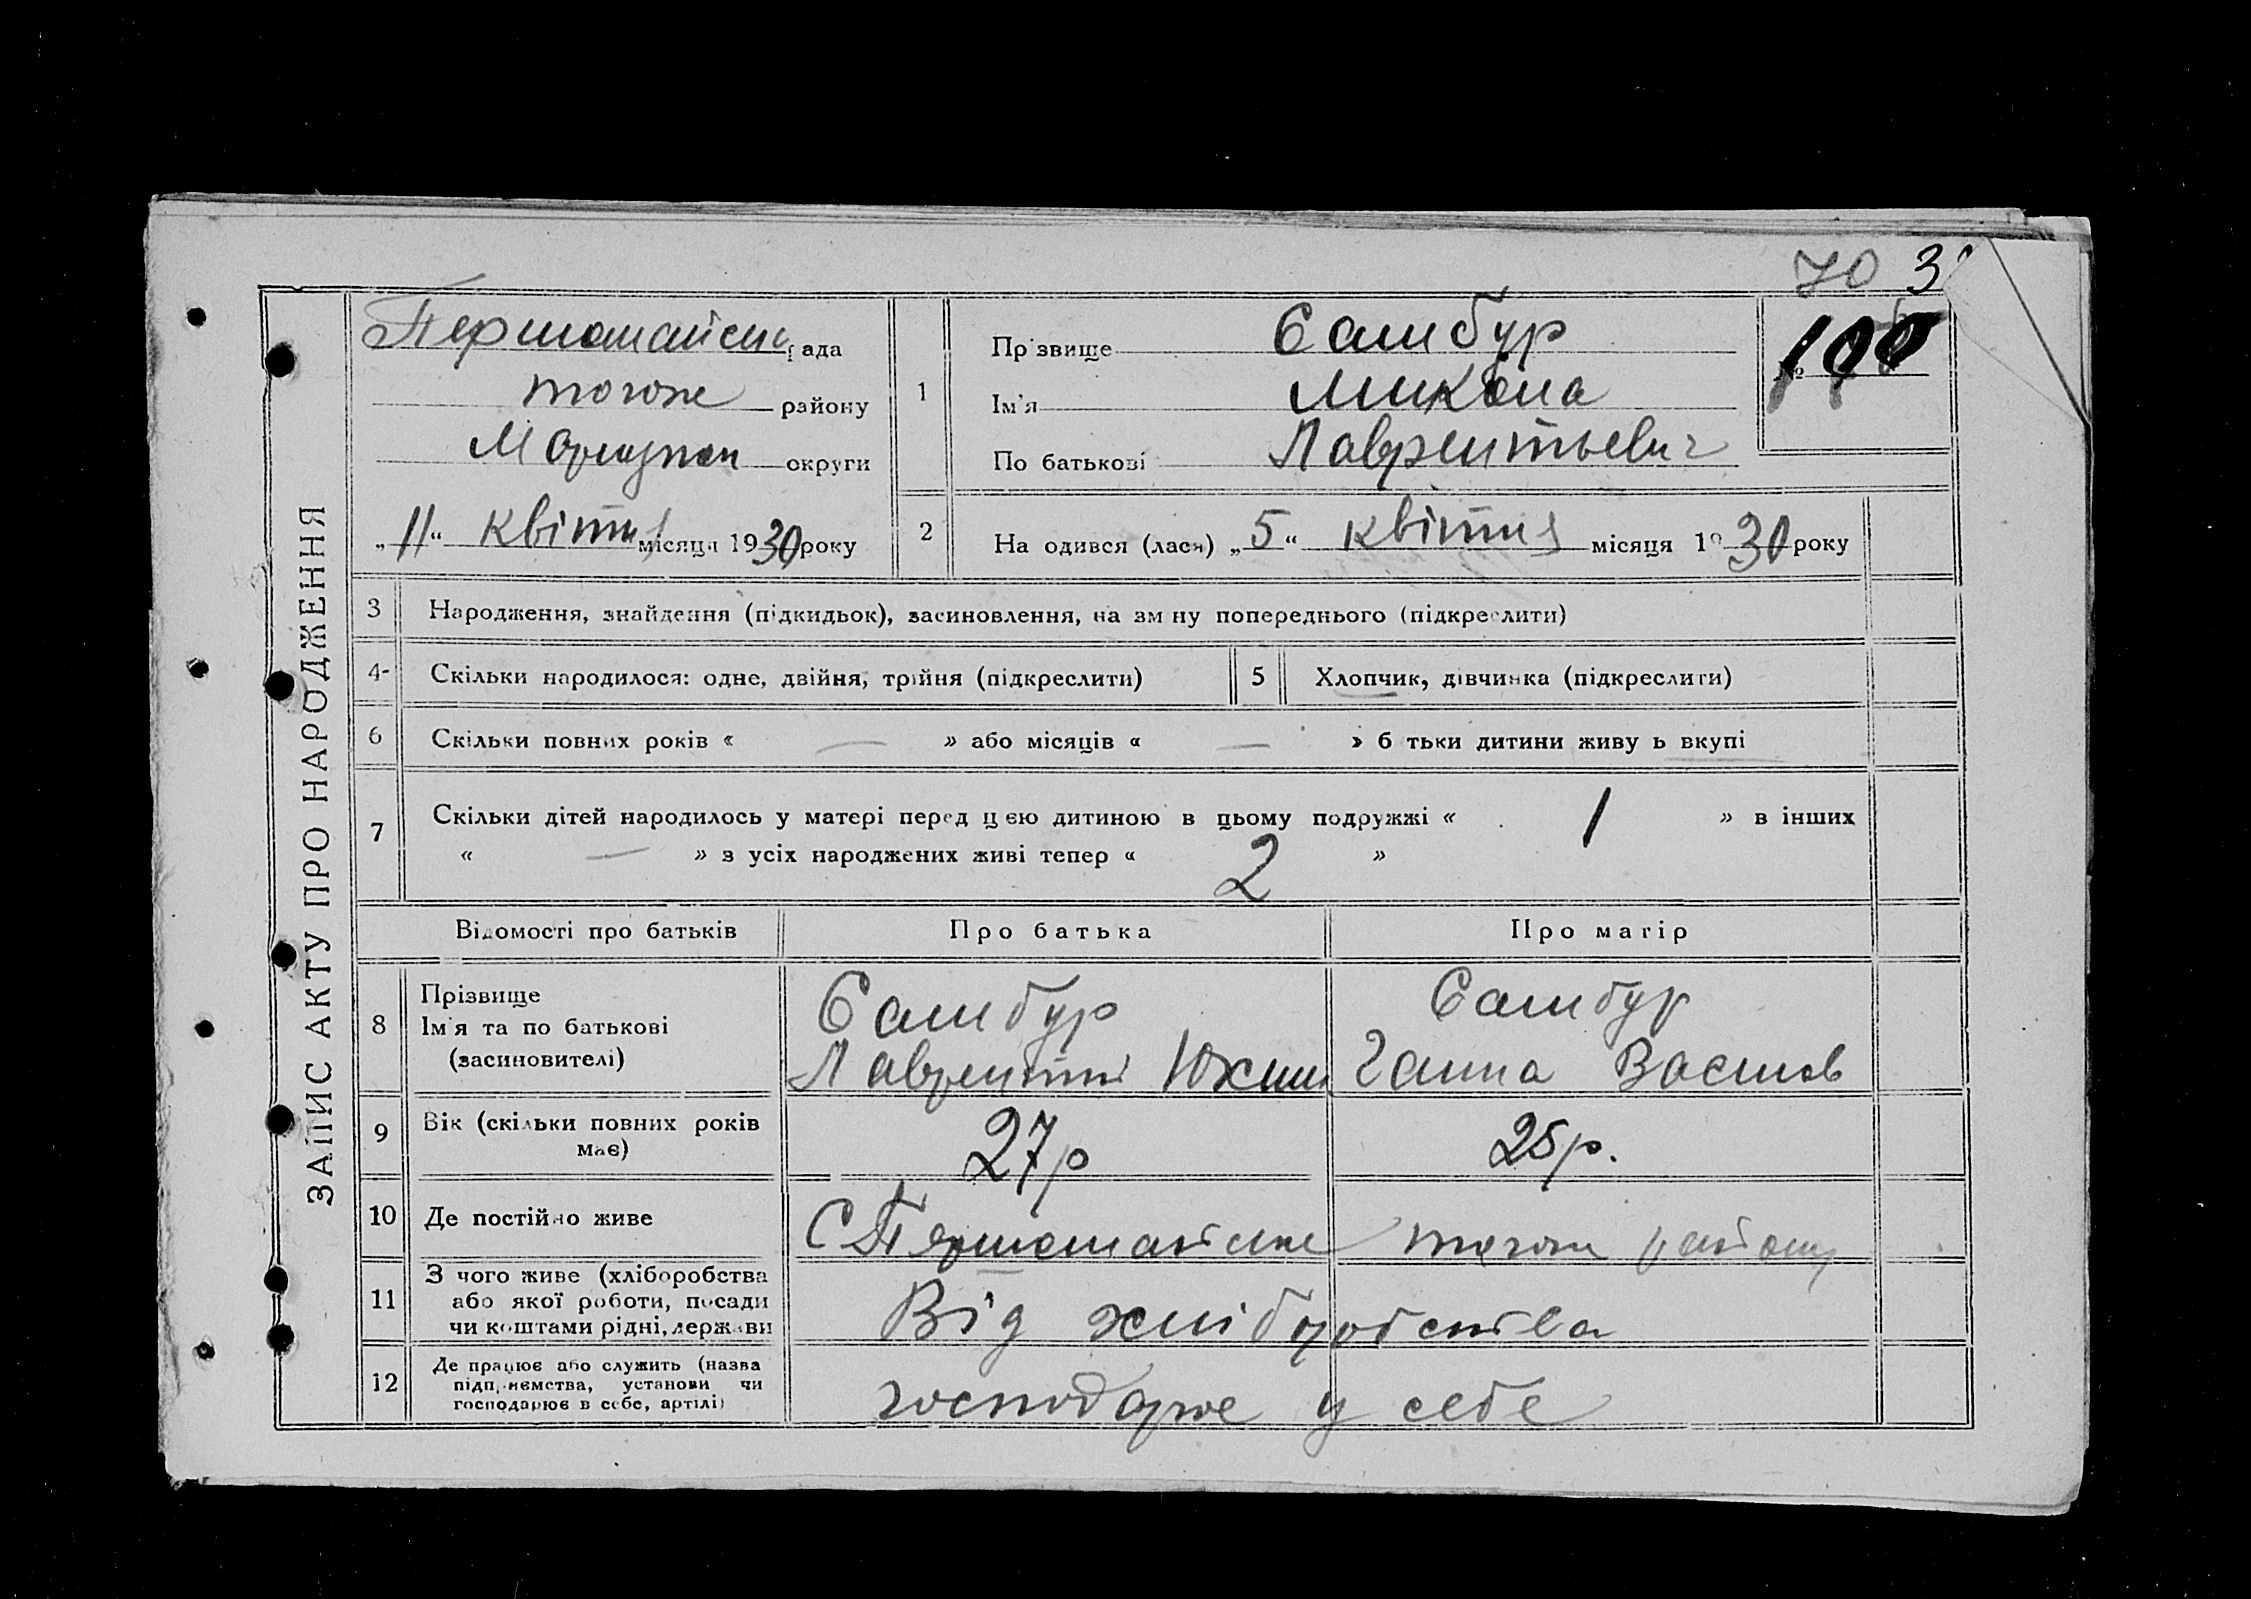 70 3
ЗАПИС АКТУ ПРО НАРОДЖЕННЯ
Першомайськ рада
тогож району
Маріупол округи
„11“ квітня місяця 1930 року
1
Прізвище Самбур
Ім'я Микола
По батькові Лаврентьевич
№ 100
2 На одився (лася) „5“ квітня місяця 1930 року
3 Народження, знайдення (підкидьок), засиновлення, на зм ну попереднього (підкреслити)
4- Скільки народилося: одне, двійня, трійня (підкреслити) 5 Хлопчик, дівчинка (підкреслити)
6 Скільки повних років « — » або місяців « — » б тьки дитини живу ь вкупі
7 Скільки дітей народилось у матері перед цею дитиною в цьому подружжі « 1 » в інших
« — » з усіх народжених живі тепер « 2 »
Відомості про батьків Про батька Про матір
8 Прізвище Самбур Самбур
Ім'я та по батькові Лаврентій Юхим Ганна Васильов
(засиновителі)
9 Вік (скільки повних років має) 27р 25р.
10 Де постійно живе С Першомайське тогож району
11 З чого живе (хліборобства
або якої роботи, посади
чи коштами рідні, держави Від хліборобства
12 Де працює або служить (назва
підприємства, установи чи
господарює в себе, артілі) господарює у себе